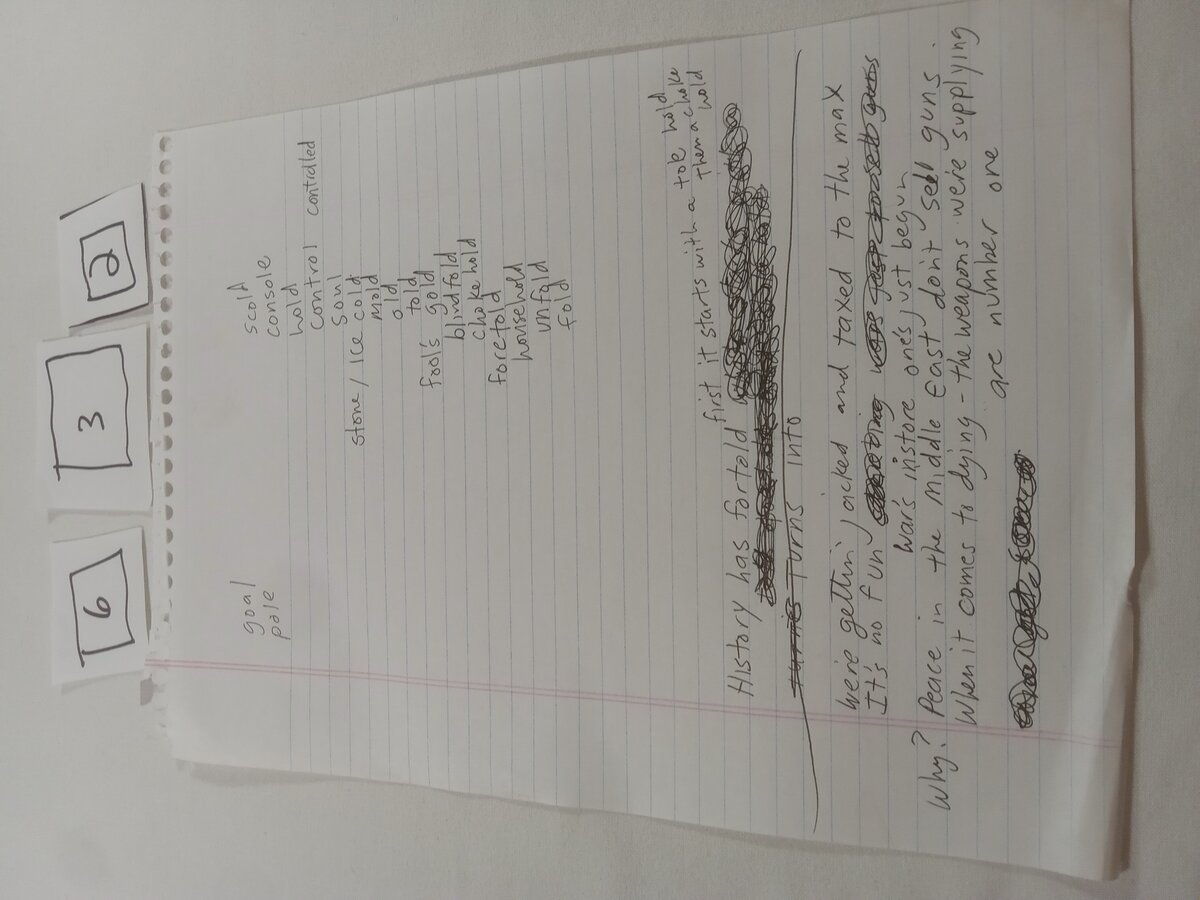 6 3 2
scold
goal console
pole hold
control controlled
soul
stone / Ice cold
mold
old
told
fool's gold
blindfold
choke hold
foretold
household
unfold
fold
History has fortold first it starts with a toe hold
Then a choke
hold
turns Turns into
We're gettin' jacked and taxed to the max
It's no fun
War's instore one's just begun
Why? Peace in the Middle East don't sell guns
When it comes to dying - the weapons we're supplying
are number one